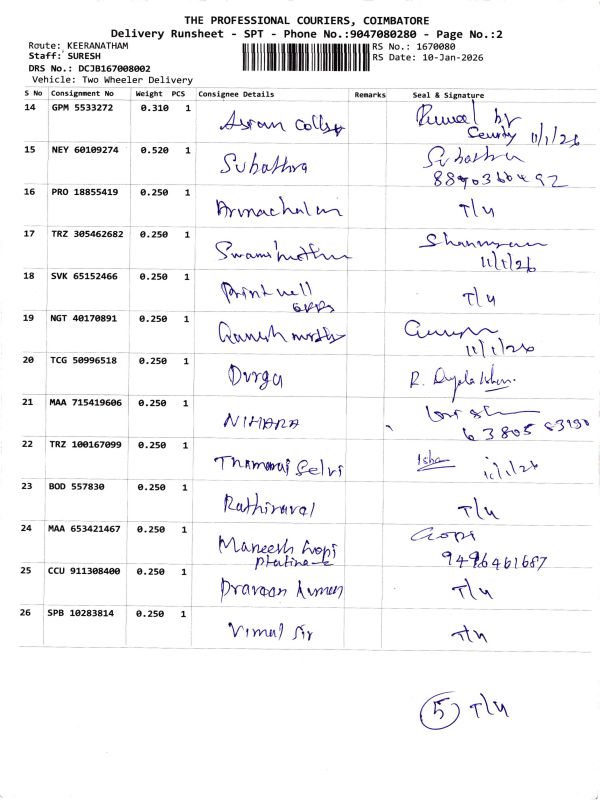 THE PROFESSIONAL COURIERS, COIMBATORE
Delivery Runsheet - SPT - Phone No.:9047080280 - Page No.:2
Route: KEERANATHAM
Staff: SURESH
DRS No.: DCJB167008002
Vehicle: Two Wheeler Delivery
RS No.: 1670080
RS Date: 10-Jan-2026
S No Consignment No Weight PCS Consignee Details Remarks Seal & Signature
14 GPM 5533272 0.310 1 11/1/26
15 NEY 60109274 0.520 1 Subathra Subathra
8890360492
16 PRO 18855419 0.250 1 Arunachalam T/4
17 TRZ 305462682 0.250 1
11/1/26
18 SVK 65152466 0.250 1 Print well T/4
19 NGT 40170891 0.250 1 Ganesh
11/1/26
20 TCG 50996518 0.250 1 Durga R.
21 MAA 715419606 0.250 1 NIHARA
63805 83190
22 TRZ 100167099 0.250 1 Thamarai Selvi Isha 11/1/26
23 BOD 557830 0.250 1 Rathinavel T/4
24 MAA 653421467 0.250 1 Maneesh Gopi Gopi
9496461687
25 CCU 911308400 0.250 1 Praveen kumar T/4
26 SPB 10283814 0.250 1 Vimal Sir T/4
5 T/4